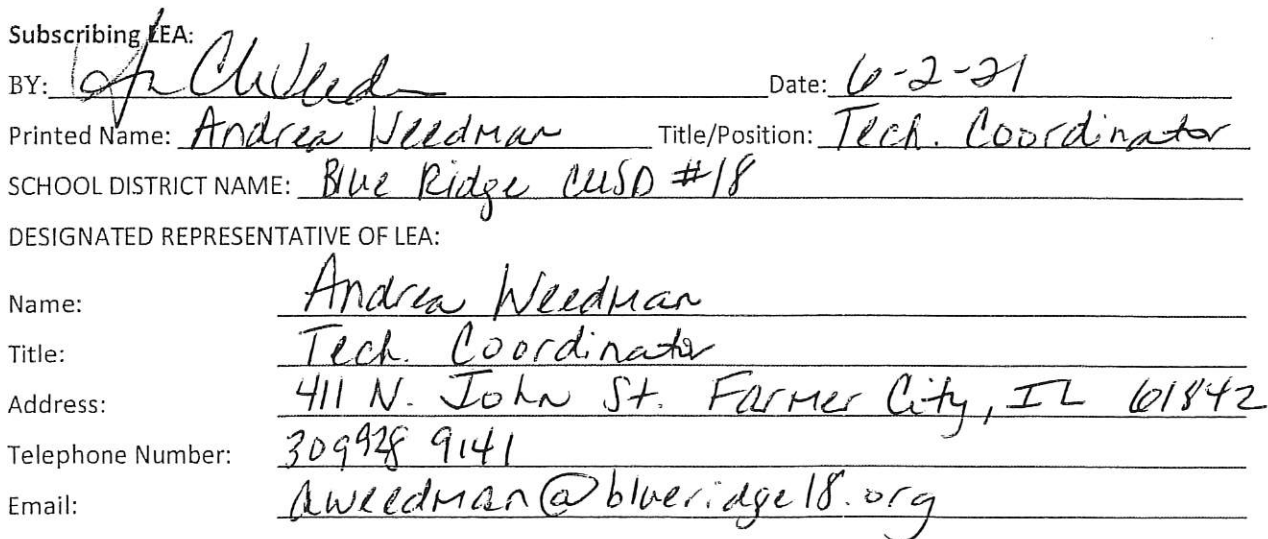 Subscribing LEA:
BY: Date: 6-2-21
Printed Name: Andrea Weedman Title/Position: Tech. Coordinator
SCHOOL DISTRICT NAME: Blue Ridge CUSD #18
DESIGNATED REPRESENTATIVE OF LEA:
Name: Andrea Weedman
Title: Tech. Coordinator
Address: 411 N. John St. Farmer City, IL 61842
Telephone Number: 309 928 9141
Email: aweedman@blueridge18.org